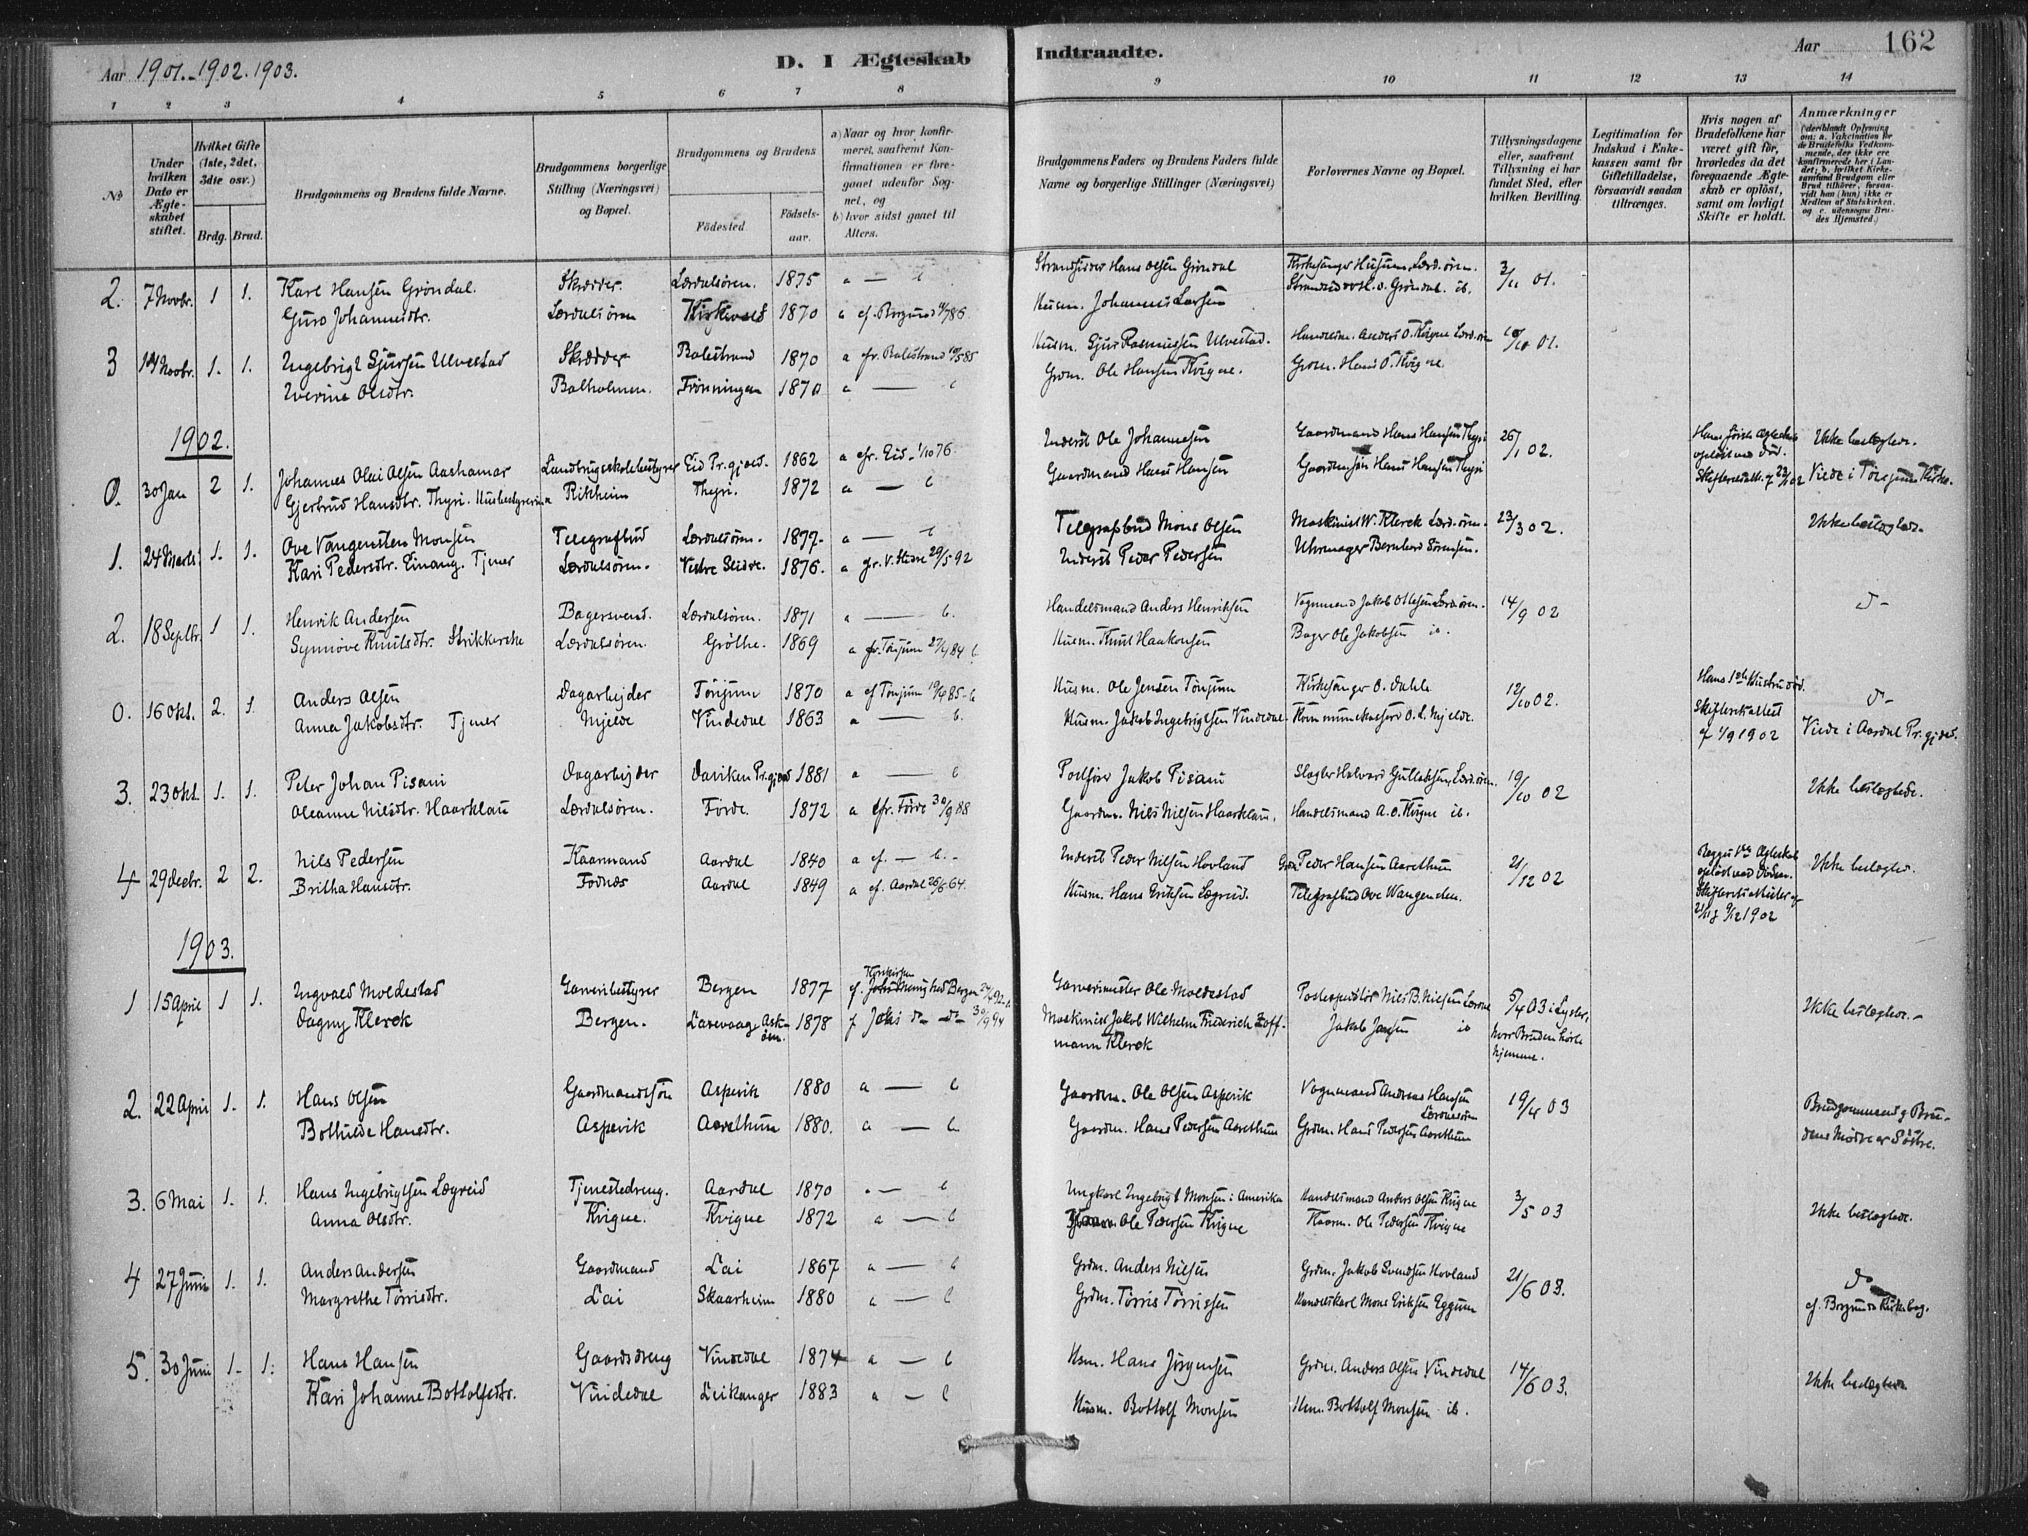 Aar 1901.-1902.1903.
D. I Ægteskab
Indtraadte.
Aar 162
1 2 3 4 5 6 7 8 9 10 11 12 13 14
No
Under hvilken Dato er Ægteskabet stiftet.
Hvilket Gifte (1ste, 2det, 3die osv.)
Brdg. Brud.
Brudgommens og Brudens fulde Navne.
Brudgommens borgerlige Stilling (Næringsvei) og Bopæl.
Brudgommens og Brudens
Födested
Födsels-aar.
a) Naar og hvor konfirmeret, saafremt Konfirmationen er foregaaet udenfor Sognet, og
b) hvor sidst gaaet til Alters.
Brudgommens Faders og Brudens Faders fulde Navne og borgerlige Stillinger (Næringsvei)
Forlovernes Navne og Bopæl.
Tillysningsdagene eller, saafremt Tillysning ei har fundet Sted, efter hvilken Bevilling.
Legitimation for Indskud i Enkekassen samt for Giftetilladelse, forsaavidt saadan tiltrænges.
Hvis nogen af Brudefolkene har været gift før, hvorledes da det foregaaende Ægteskab er oplöst, samt om lovligt Skifte er holdt.
Anmærkninger
(deriblandt Oplysning om: a. Vakcination for de Brudefolks Vedkommende, der ikke ere konfirmerede her i Landet; b. hvilket Kirkesamfund Brudgom eller Brud tilhører, forsaavidt han (hun) ikke er Medlem af Statskirken, og c. udensogns Brudes Hjemsted.)
2. 7 Novbr. 1 1. Karl Hansen Gröndal. Skrædder Lærdalsören. 1875 a — b Strandsidder Hans Olsen Gröndal Kirkesanger Husum, Lærd.ören. 3/11 01.
Guro Johannesdtr. Lærdalsören Kirkevold 1870 a cf. Borgund 4/7 86. Husm. Johannes Larsen
3 14 Novbr. 1. 1. Ingebrigt Sjursen Ulvestad Skrædder Balestrand 1870 a fr. Balestrand 10/5 85 Husm. Sjur Rasmussen Ulvestad. Handelsm. Anders O. Kvigne Lærd.ören
Iverine Olsdtr. Balholmen. Frönningen 1870 a — b Grdm. Ole Hansen Kvigne. Grdm. Hans O. Kvigne.
1902.
0. 30 Jan 2 1. Johannes Olai Olsen Aashamar Landbrugsskolebestyrer Eid Pr.gjeld. 1862 a cfr. Eid 1/10 76. Inderst Ole Johannesen Gaardmand Hans Hansen Thyri 26/1 02. Ikke beslægtede.
Gjertrud Hansdtr. Thyri. Husbestyrerinde Rikheim Thyri. 1872 a — b Gaardmand Hans Hansen Gaardmsön Hans Hansen Thyri Viede i Tönjums Kirke.
1. 24 Marts 1. 1. Ove Vangensten Monsen Telegrafbud Lærdalsören. 1877. a — b Telegrafbud Mons Olsen Maskinist W. Klerck Lærd.ören. 23/3 02. Ikke beslægtede.
Kari Pedersdtr. Einang. Tjener Lærdalsören. Vestre Slidre. 1876. a fr. V. Slidre 29/5 92 Inderst Peder Pedersen Uhrmager Bernhard Sörensen.
2. 18 Septbr. 1 1. Henrik Andersen Bagersvend. Lærdalsören. 1871 a — b. Handelsmand Anders Henriksen Vognmand Jakob Ollesen Lærd.ören. 14/9 02 d-
Synnöve Knutsdtr. Strikkerske Lærdalsören. Gröthe. 1869 a fr. Tönjum 27/4 84 b Husm. Knut Haakonsen Bager Ole Jakobsen ib.
0. 16 Okt. 2. 1. Anders Olsen Dagarbejder Tönjum 1870 a cf Tönjum 19/4 85 - b Husm. Ole Jensen Tönjum Kirkesanger O. Dahle 12/10 02. Hans 1ste Hustru död. d-
Anna Jakobsdtr. Tjener Hjelde Vindedal 1863 a — b. Husm. Jakob Ingebrigtsen Vindedal. Kommunekasserer O. L. Hjelde. Skifteretsattest af 1/9 1902 Viede i Aardal Pr.gjeld.
3. 23 Okt. 1. 1. Peter Johan Pisani Dagarbejder Daviken Pr.gjeld 1881 a — b Postförer Jakob Pisani Slagter Halvard Gulleksen, Lærd.ören. 19/10 02 Ikke beslægtede.
Oleanne Nilsdtr. Haarklau Lærdalsören. Förde. 1872 a cfr. Förde 30/9 88 Gaardm. Nils Nilsen Haarklau. Handelsmand A. O. Kvigne ib.
4 29 Decbr. 2 2. Nils Pedersen Kaarmand Aardal 1840 a cf. — b. Inderst Peder Nilsen Hovland Grdm Peder Hansen Aarethun 21/12 02 Begges 1ste Ægteskab oplöst ved Döden. Ikke beslægted.
Britha Hansdtr. Fodnæs Aardal 1849 a cf. Aardal 26/6 64. Husm. Hans Eriksen Lægreid. Telegrafbud Ove Wangensten. Skifteretsattester af 9/12 1902
1903.
1 15 April 1 1. Ingvald Moldestad Garveribestyrer Bergen 1877 Korskirken Bergen Garvermester Ole Moldestad Postexpeditör Nils B. Nilsen Lærdal 5/4 03 i Lyster, Ikke beslægtede.-
Dagny Klerck Bergen. Laxevaag Asköen. 1878 Maskinist Jakob Wilhelm Friederich Hoffmann Klerck Jakob Jansen ib hvor Bruden hörte hjemme.
2. 22 April 1. 1. Hans Olsen Gaardmandssön Aspevik 1880 a — b Gaardm. Ole Olsen Aspevik Vognmand Andreas Hansen Lærdalsören 19/4 03 Brudgommens og Bru-
Bothilde Hansdtr. Aspevik Aarethun 1880. a — b. Gaardm. Hans Pedersen Aarethun Grdm. Hans Pedersen Aarethun dens Mödre er Söstre.
3. 6 Mai 1. 1. Hans Ingebrigtsen Lægreid Tjenestedreng. Aardal 1870 a — b Ungkarl Ingebrigt Monsen i Amerika Handelsmand Anders Olsen Kvigne 3/5 03 Ikke beslægtede.
Anna Olsdtr. Kvigne. Kvigne 1872 a — b Ole Pedersen Kvigne Kaarm. Ole Pedersen Kvigne
4 27 Juni 1. 1. Anders Andersen Gaardmand Lai 1867 a — b Grdm. Anders Nilsen Grdm. Jakob Svendsen Hovland 21/6 03. do
Margrethe Torrisdtr. Lai Skaarheim 1880 a — b Grdm. Törris Törrissen Handelskarl Mons Eriksen Eggum cf. Borgunds Kirkebog.
5. 30 Juni 1- 1. Hans Hansen Gaardsdreng Vindedal 1874 a — b Hsm. Hans Jörgensen Grdm. Anders Olsen Vindedal 14/6 03. Ikke beslægtede
Kari Johanne Bottolfsdtr. Vindedal Leikanger 1883 a — b Husm. Bottolf Monsen Hsm. Bottolf Monsen ib.